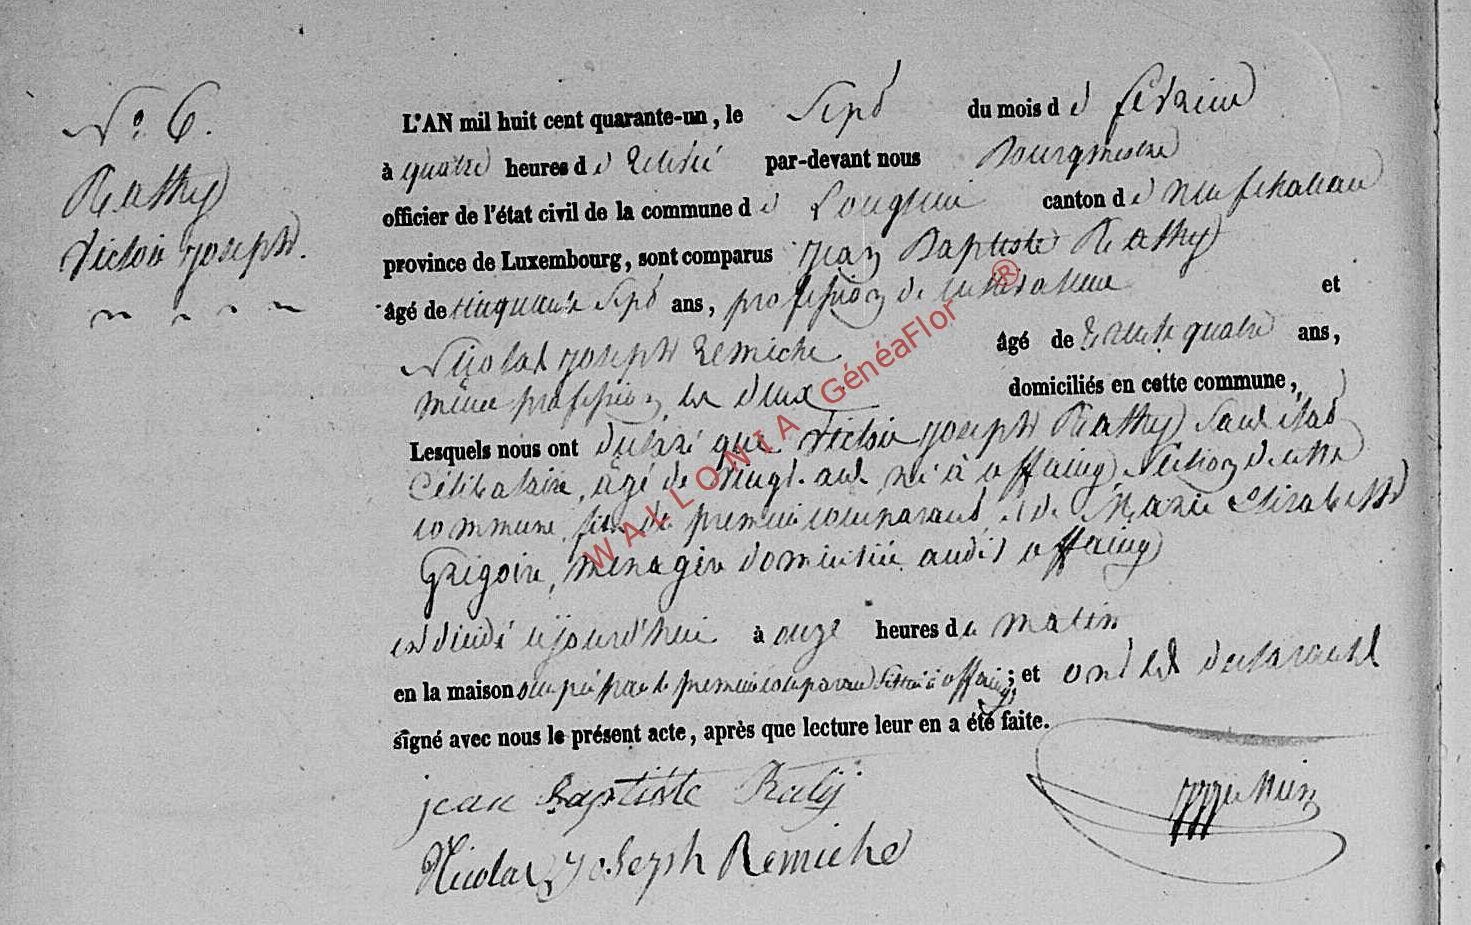 N°. 6.
Rathy
Victoir Joseph.
L'AN mil huit cent quarante-un, le Sept du mois d e fevrier
à quatre heures d e relevée par-devant nous Bourgmestre
officier de l'état civil de la commune d e Longlier canton d e neufchateau
province de Luxembourg, sont comparus Jean Baptiste Rathy
âgé de cinquante sept ans, profession de cultivateur et
Nicolas Joseph Remiche âgé de trente quatre ans,
même profession les deux domiciliés en cette commune,
Lesquels nous ont déclaré que Victoir Joseph Rathy Sans état
Célibataire, âgé de vingt ans, né à offaing Section de cette
commune, fils de premier comparant, et de Marie Elisabeth
Grégoire, ménagère domiciliée audit offaing
est décédé aujourd'hui à onze heures du matin
en la maison occupée par le premier comparant située à offaing; et ont les déclarants
signé avec nous le présent acte, après que lecture leur en a été faite.
jean Baptiste Ratij
Nicolas Joseph Remiche
WALLONIA GénéaFlor ®